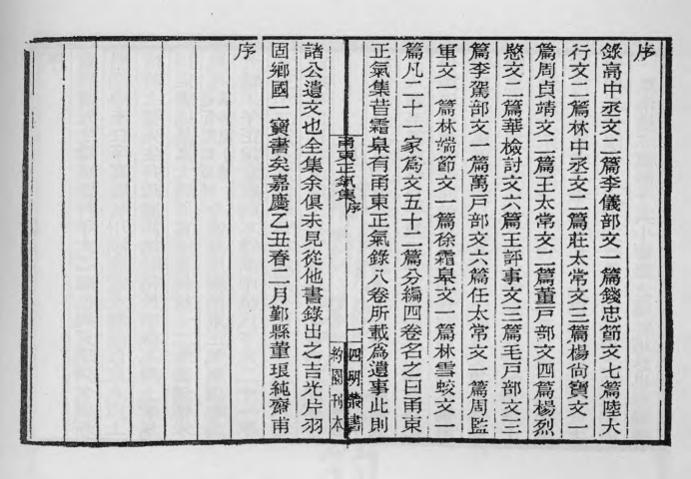 序
錄高中丞文二篇李儀部文一篇錢忠節文七篇陸大
行文二篇林中丞文二篇莊太常文三篇楊尙寶文一
篇周貞靖文二篇王太常文二篇董戸部文四篇楊烈
愍文二篇華檢討文六篇王評事文三篇毛戸部文三
篇李駕部文一篇萬戸部文六篇任太常文一篇周監
軍文一篇林端節文一篇徐霜皋文一篇林雪蛟文一
篇凡二十一家爲文五十二篇分編四卷名之曰甬東
正氣集昔霜皋有甬東正氣錄八卷所載爲遺事此則
甬東正氣集 序
一
四明叢書
約園刊本
諸公遺文也全集余俱未見從他書錄出之吉光片羽
固鄉國一寶書矣嘉慶乙丑春二月鄞縣董琅純齋甫
序